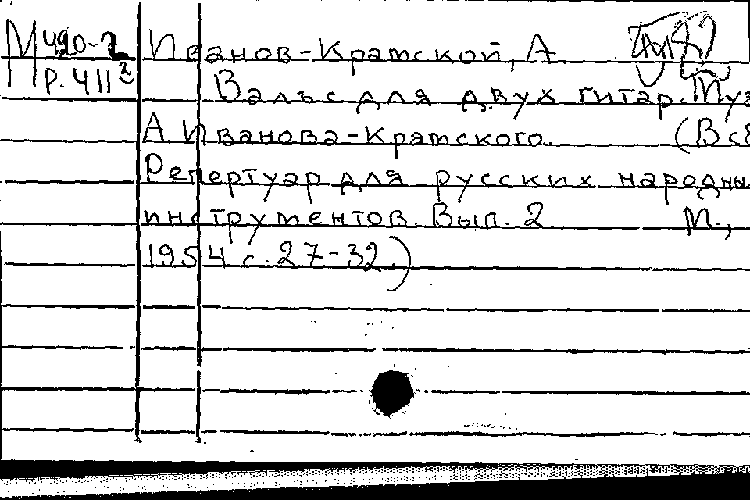 М 490-2
Р. 411²
Иванов-Крамской, А.
Вальс для двух гитар. Муз
А Иванова-Крамского. (Всб
Репертуар для русских народны
инструментов. Вып. 2 М.,
1954 с. 27-32.)